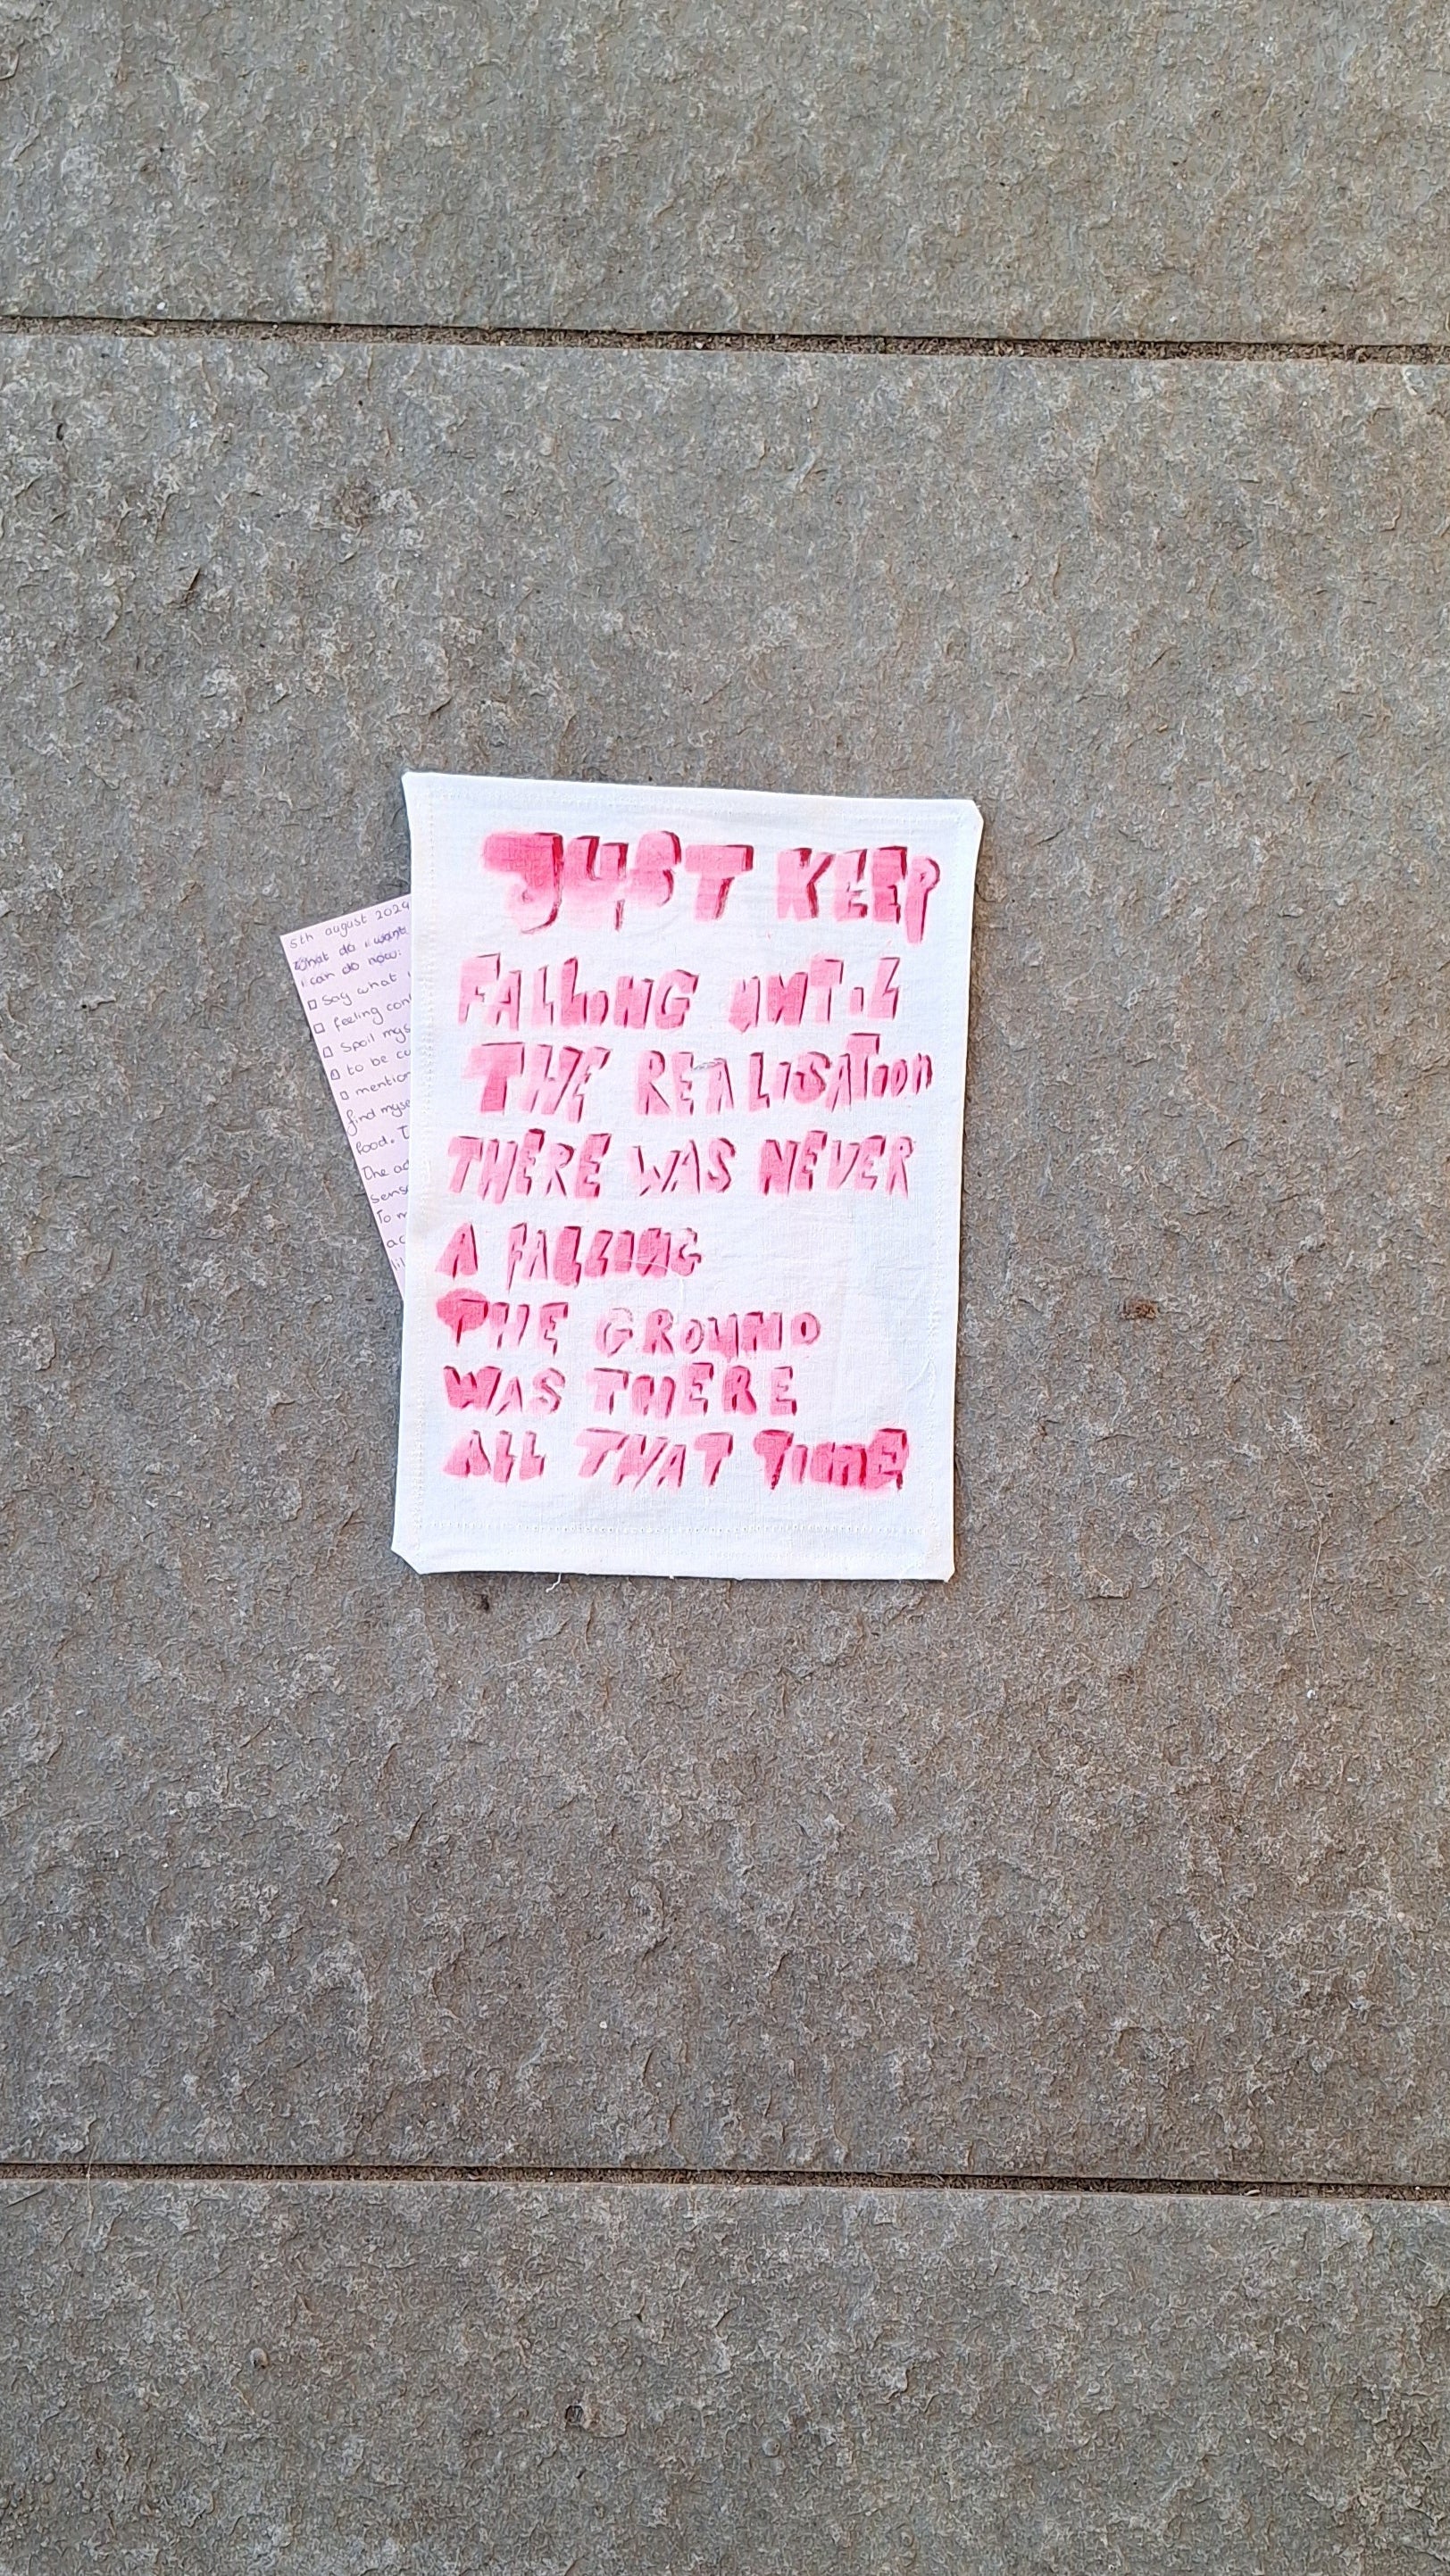 5th august 2024
What do i want
i can do now:
Say what
feeling
Spoil
to be
mention
find
food.
The
To
JUST KEEP
FALLING UNTIL
THE REALISATION
THERE WAS NEVER
A FALLING
THE GROUND
WAS THERE
ALL THAT TIME